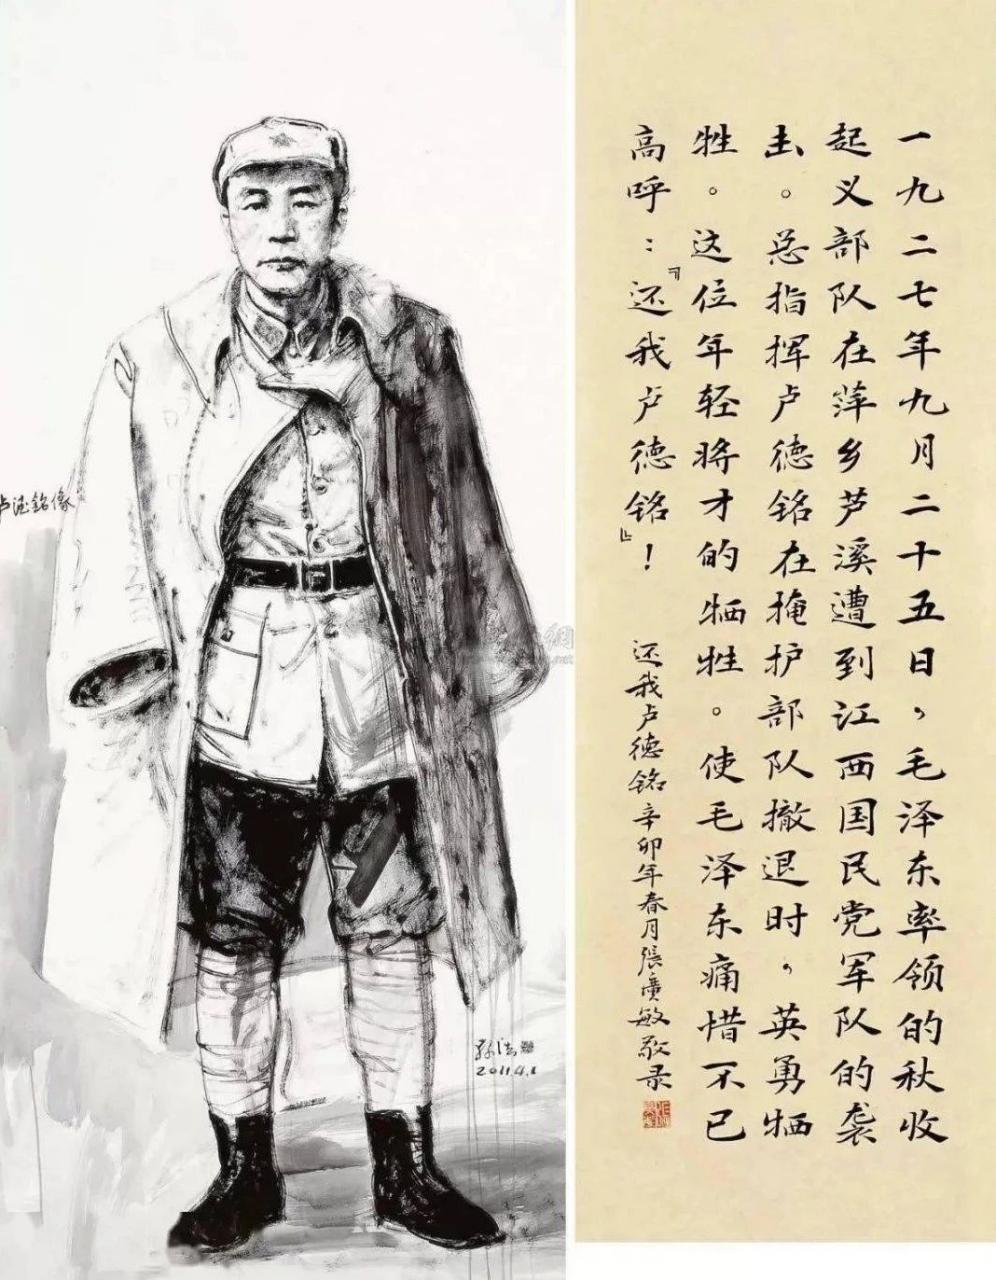 卢德銘像
2011.4.1
一九二七年九月二十五日，毛泽东率领的秋收
起义部队在萍乡芦溪遭到江西国民党军队的袭
击。总指挥卢德铭在掩护部队撤退时，英勇牺
牲。这位年轻将才的牺牲。使毛泽东痛惜不已
高呼：『还我卢德铭』！
还我卢德铭辛卯年春月張廣敏敬录